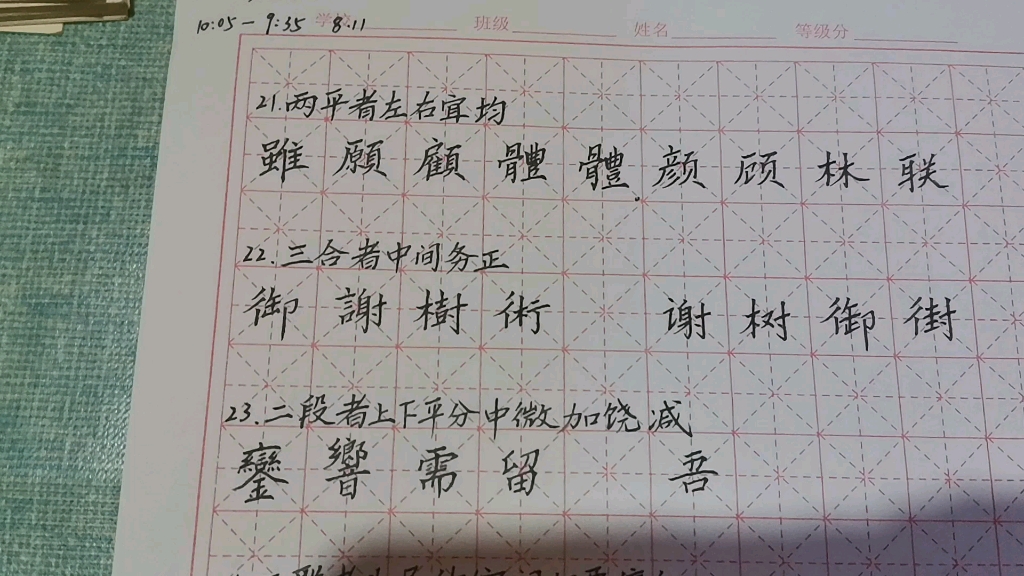 10:05-9:35 8.11
学校 班级 姓名 等级分
21.两平者左右宜均
雖 願 顧 體 體 颜 顾 林 联
22.三合者中间务正
御 謝 樹 術 谢 树 御 街
23.二段者上下平分中微加饶减
鑾 響 需 留 吾